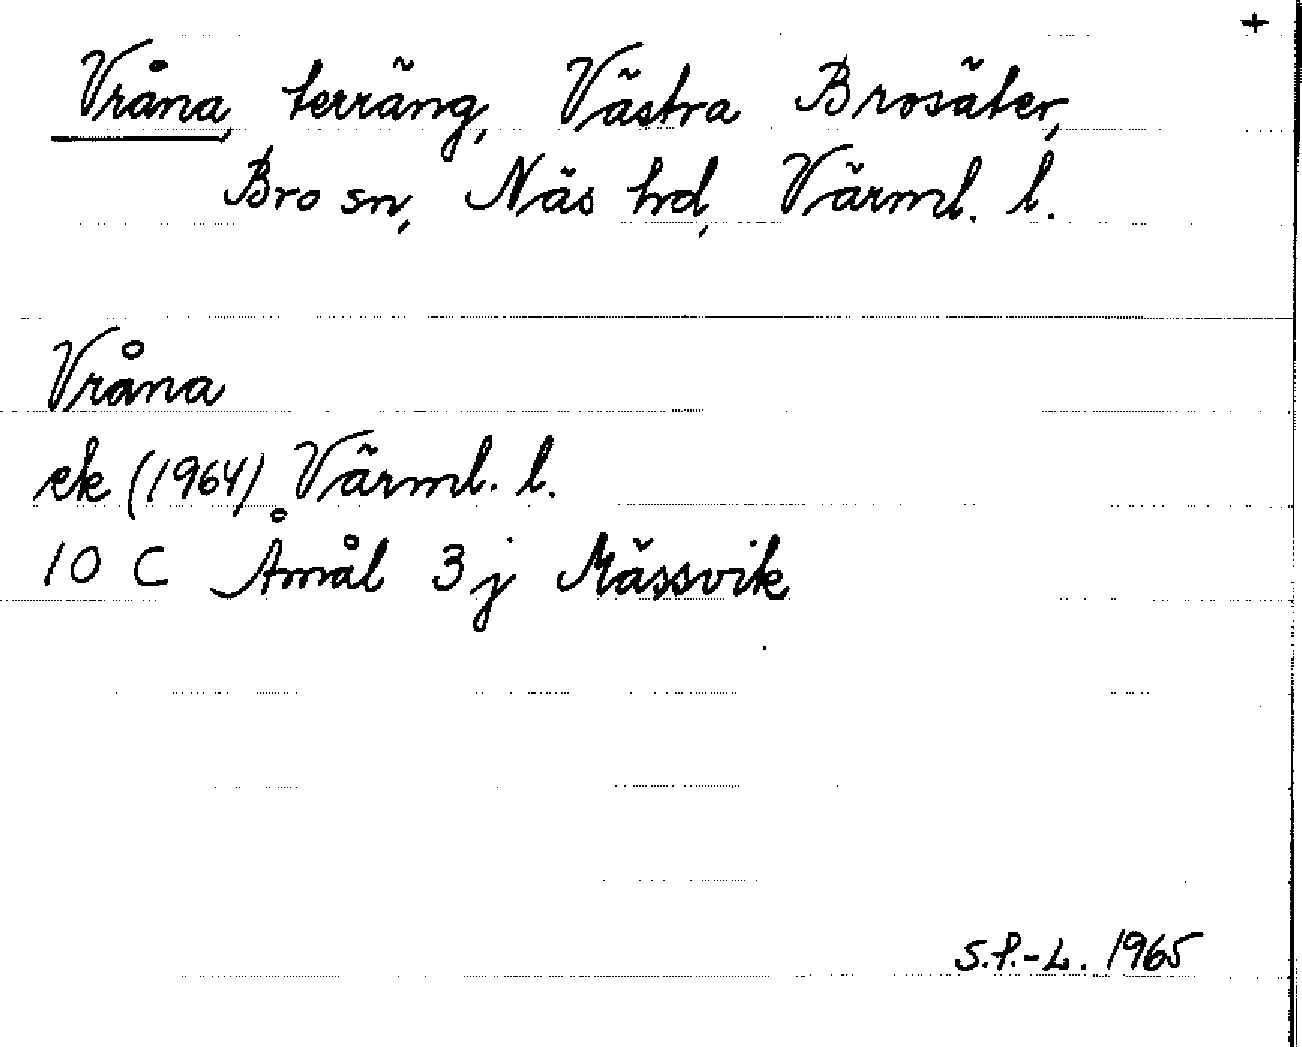 +
Vråna, terräng, Västra Brosäter,
Bro sn, Näs hd, Värml. l.
Vråna
ek (1964) Värml. l.
10 C Åmål 3 j Mässvik
S.P.-L. 1965